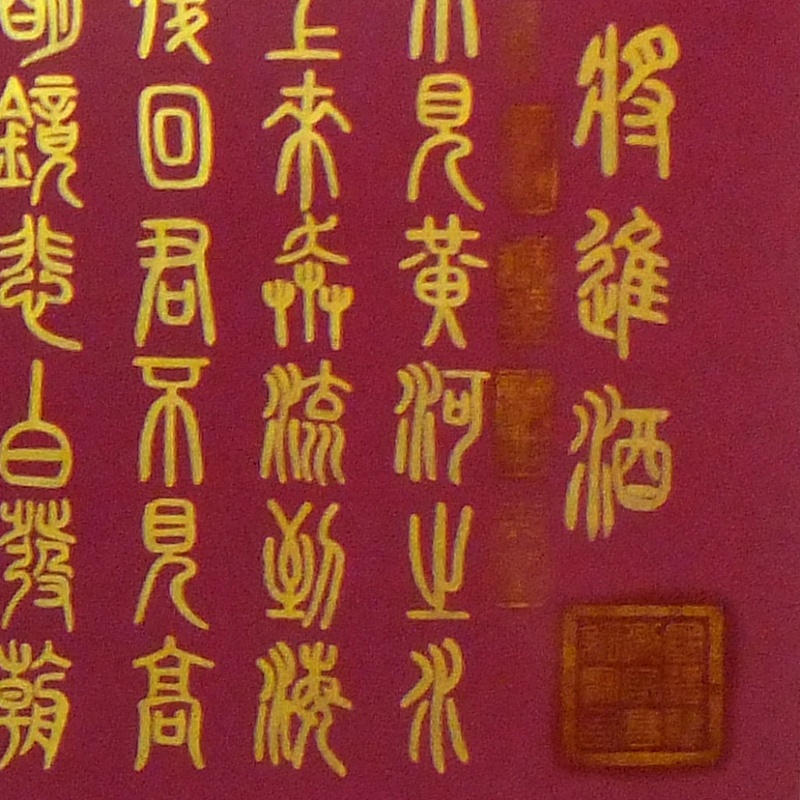 將進酒
不見黃河之水
上來奔流到海
復回君不見高
明鏡悲白發朝